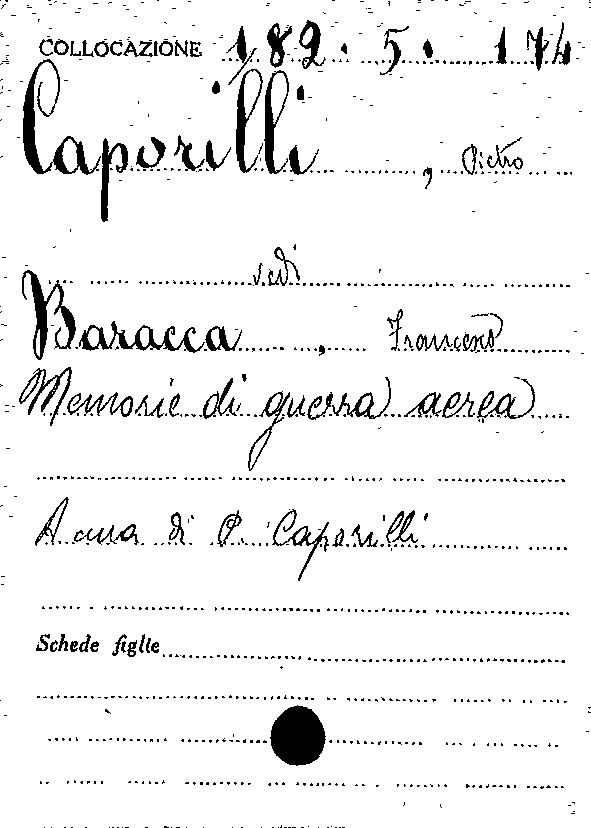 COLLOCAZIONE 182.5.174
Caporilli, Pietro
vedi
Baracca, Francesco
Memorie di guerra aerea
A cura di P. Caporilli
Schede figlie